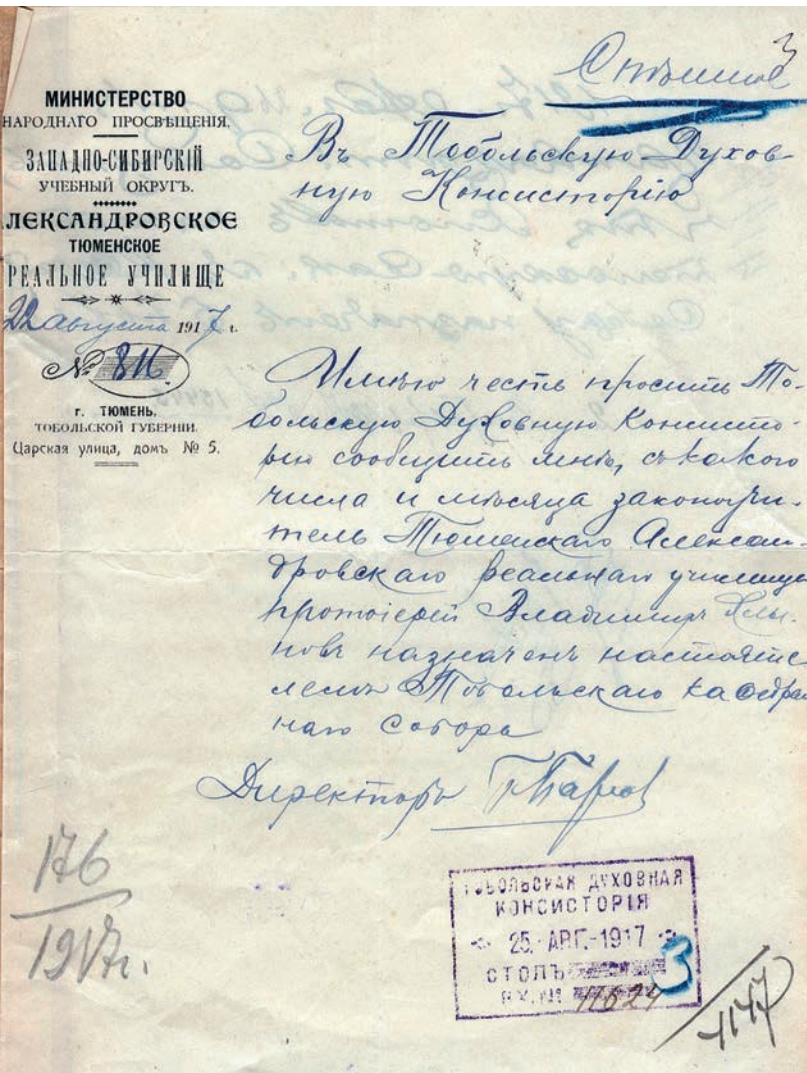 3
Спѣшное
МИНИСТЕРСТВО
НАРОДНАГО ПРОСВѢЩЕНІЯ.
ЗАПАДНО-СИБИРСКІЙ
УЧЕБНЫЙ ОКРУГЪ.
ЛЕКСАНДРОВСКОЕ
ТЮМЕНСКОЕ
РЕАЛЬНОЕ УЧИЛИЩЕ
22 Августа 1917 г.
№ 811.
г. ТЮМЕНЬ,
ТОБОЛЬСКОЙ ГУБЕРНІИ.
Царская улица, домъ № 5.
Въ Тобольскую Духов-
ную Консисторію
Имѣю честь просить То-
больскую Духовную Консисто-
рію сообщить мнѣ, съ какого
числа и мѣсяца законоучи-
тель Тюменскаго Алексан-
дровскаго реальнаго училища
протоіерей Владимиръ Хлы-
новъ назначенъ настояте-
лемъ Тобольскаго каѳедраль
наго Собора
Директоръ
176
1917 г.
ТОБОЛЬСКАЯ ДУХОВНАЯ
КОНСИСТОРІЯ
25. АВГ. 1917
СТОЛЪ 3
ВХ. № 11624
4147